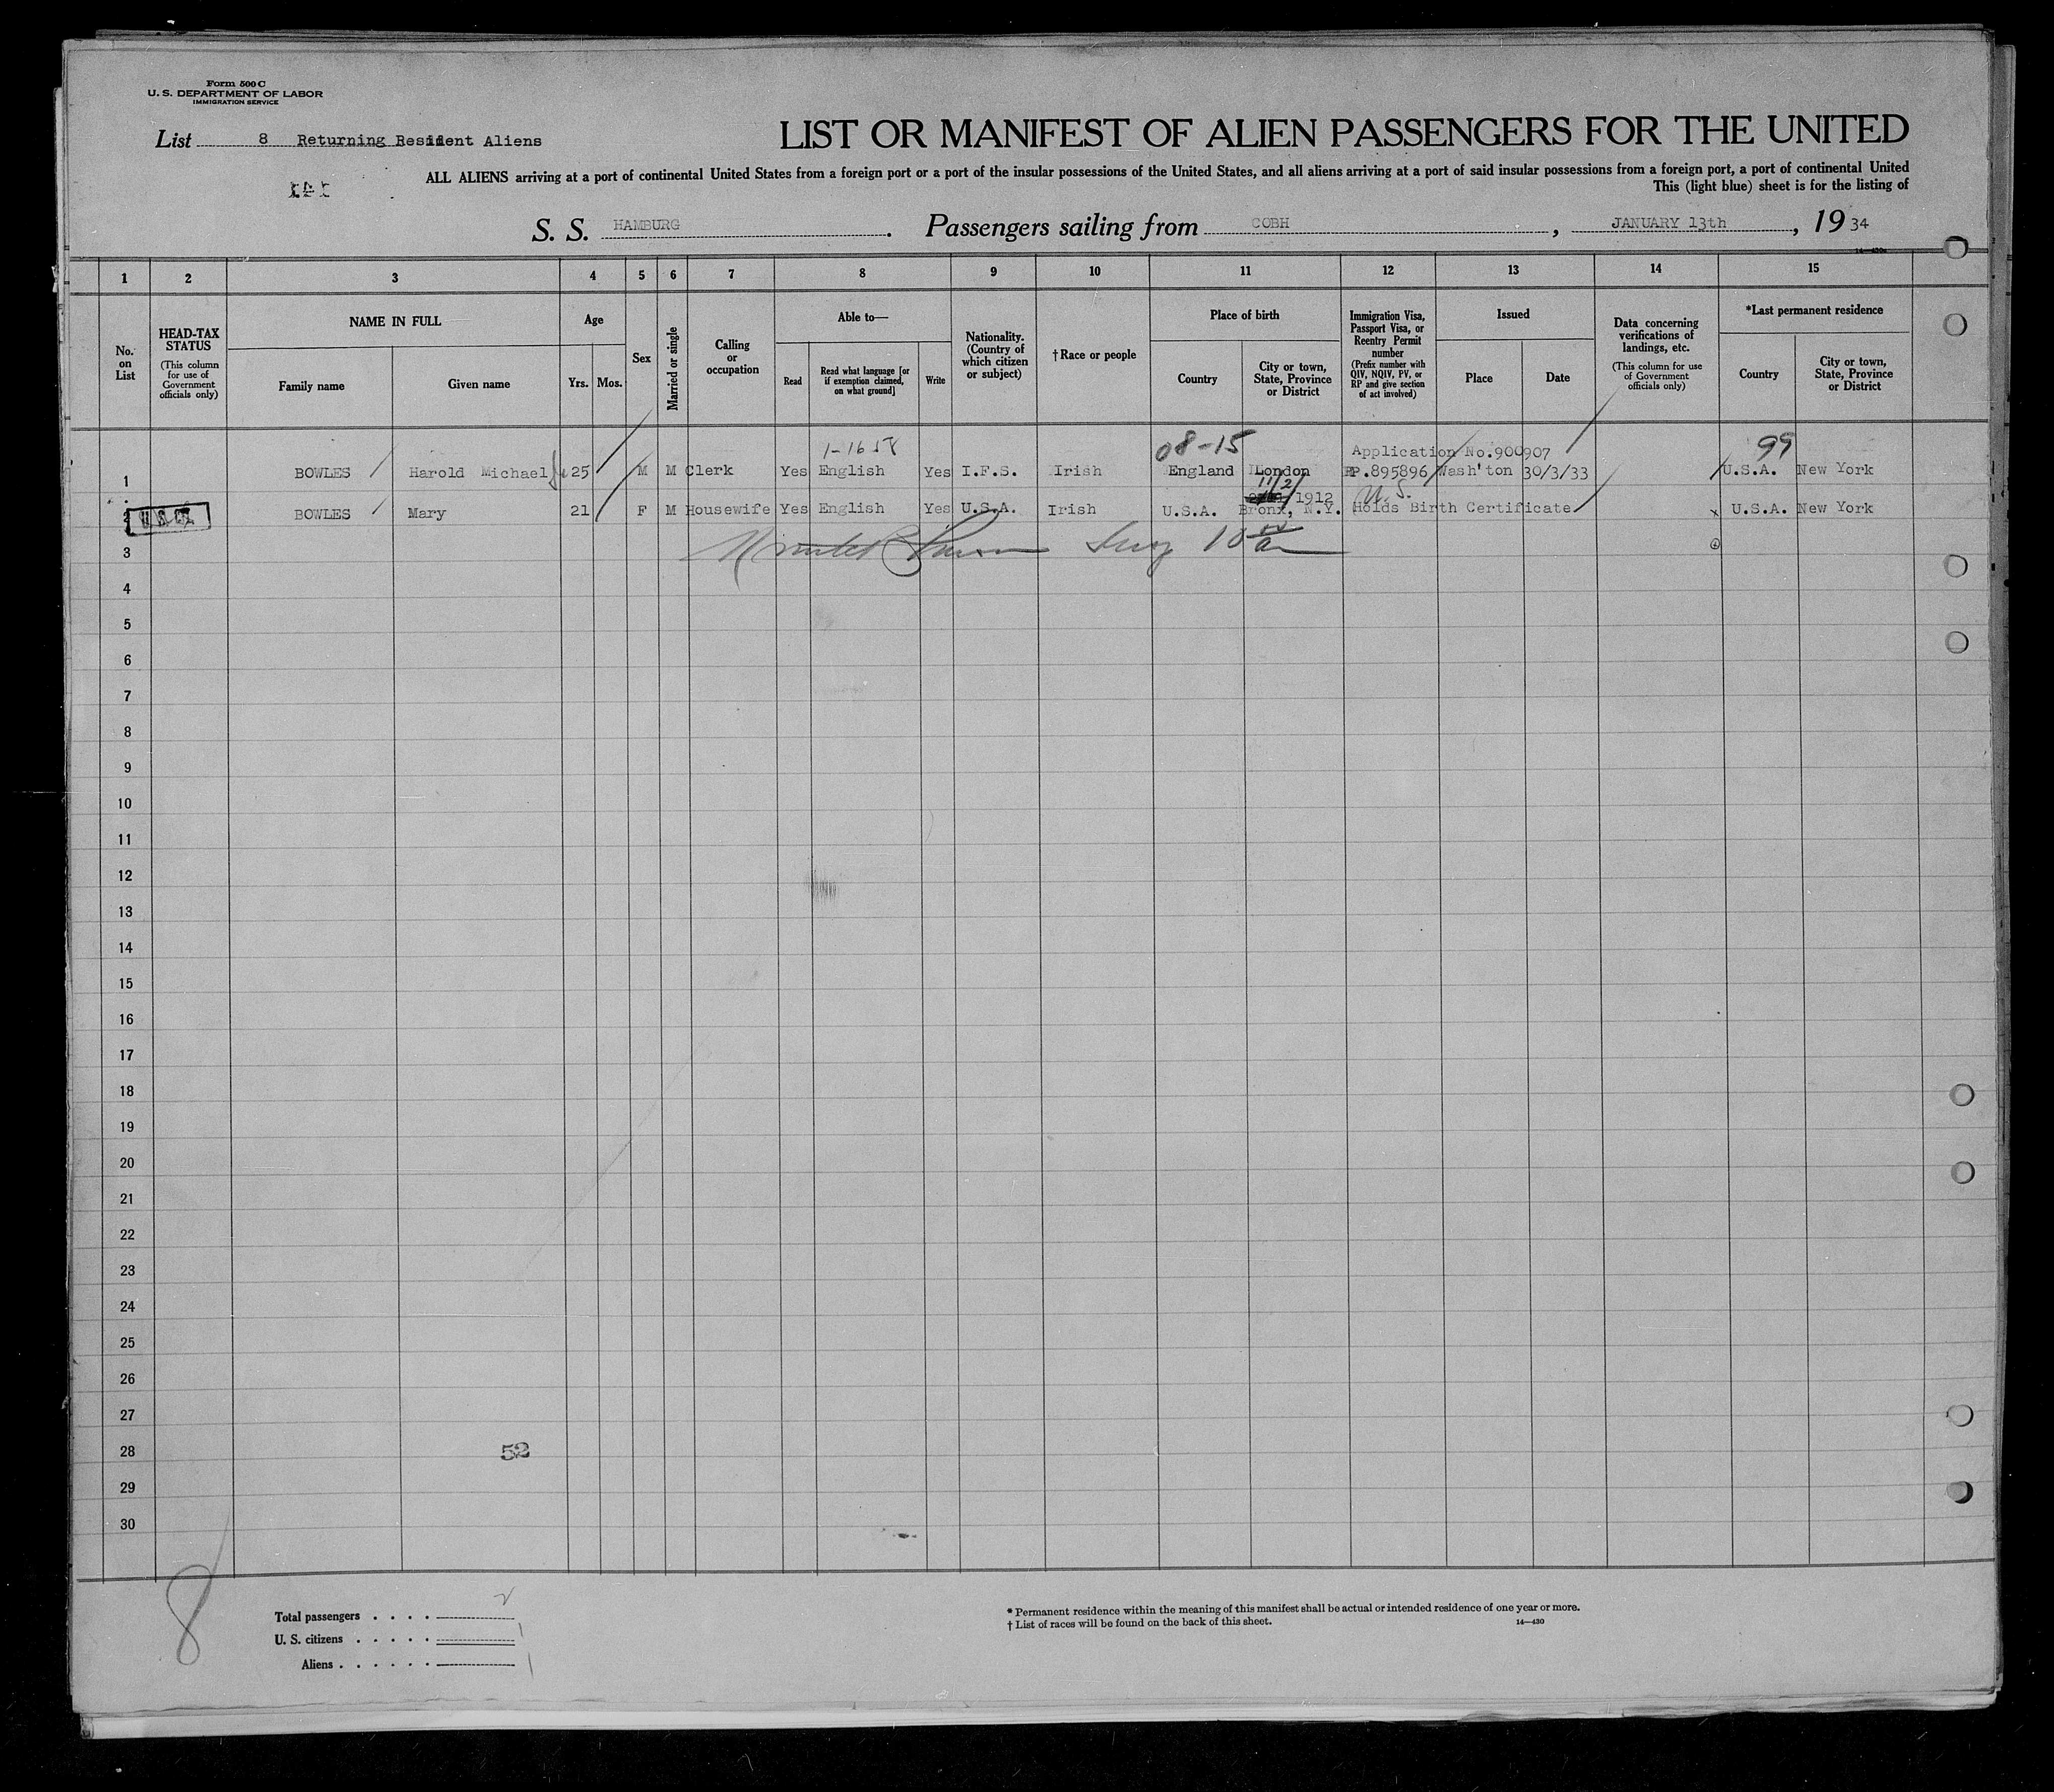 Form 500 C
U. S. DEPARTMENT OF LABOR
IMMIGRATION SERVICE
List 8 Returning Resident Aliens
LIST OR MANIFEST OF ALIEN PASSENGERS FOR THE UNITED
ALL ALIENS arriving at a port of continental United States from a foreign port or a port of the insular possessions of the United States, and all aliens arriving at a port of said insular possessions from a foreign port, a port of continental United
This (light blue) sheet is for the listing of
S. S. HAMBURG. Passengers sailing from COBH, JANUARY 13th, 1934
1 2 3 4 5 6 7 8 9 10 11 12 13 14 15
No. on List
HEAD-TAX STATUS (This column for use of Government officials only)
NAME IN FULL
Family name
Given name
Age
Yrs. Mos.
Sex
Married or single
Calling or occupation
Able to—
Read
Read what language [or if exemption claimed, on what ground]
Write
Nationality. (Country of which citizen or subject)
†Race or people
Place of birth
Country
City or town, State, Province or District
Immigration Visa, Passport Visa, or Reentry Permit number (Prefix number with QIV, NQIV, PV, or RP and give section of act involved)
Issued
Place
Date
Data concerning verifications of landings, etc. (This column for use of Government officials only)
*Last permanent residence
Country
City or town, State, Province or District
1-1658 08-15 Application No.900907 99
1 BOWLES Harold Michael 25 M M Clerk Yes English Yes I.F.S. Irish England London RP.895896 Wash'ton 30/3/33 U.S.A. New York
11/2/ 1912 U.S.
2 BOWLES Mary 21 F M Housewife Yes English Yes U.S.A. Irish U.S.A. Bronx, N.Y. Holds Birth Certificate x U.S.A. New York
3
4
5
6
7
8
9
10
11
12
13
14
15
16
17
18
19
20
21
22
23
24
25
26
27
28 52
29
30
8
Total passengers . . . . 2
U. S. citizens . . . . . 1
Aliens . . . . . . 1
* Permanent residence within the meaning of this manifest shall be actual or intended residence of one year or more.
† List of races will be found on the back of this sheet. 14—430